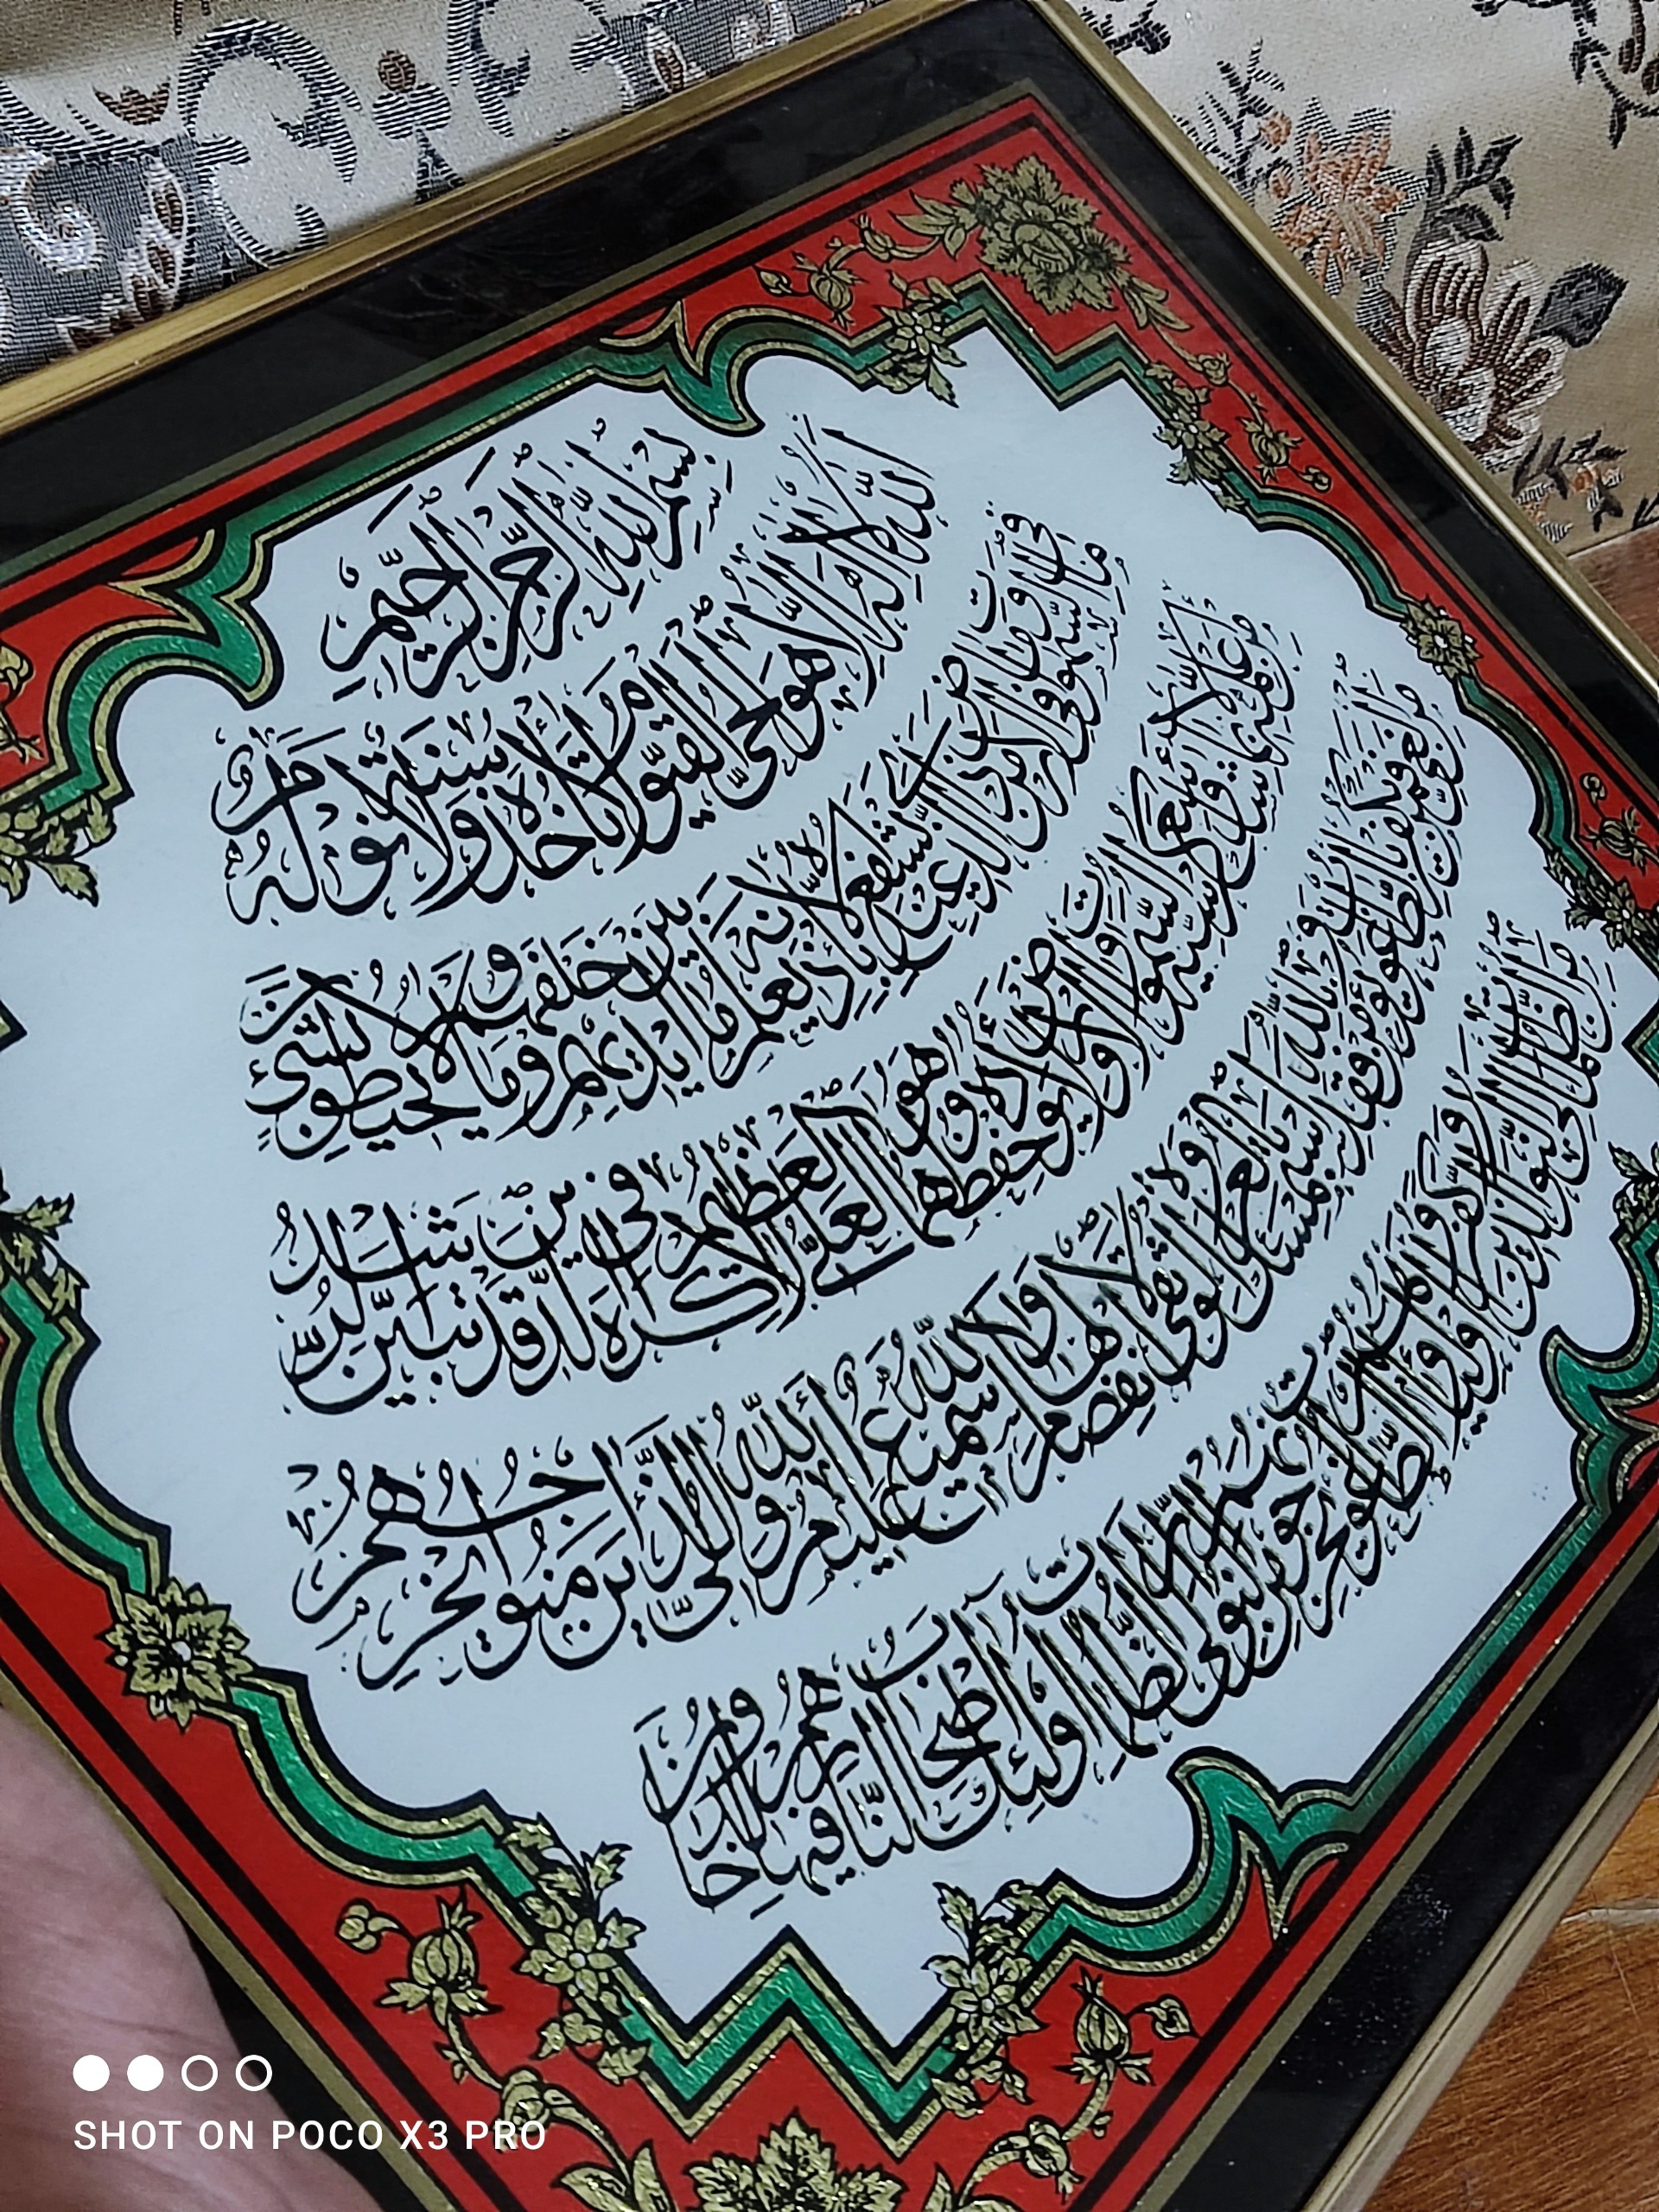 بِسْمِ اللهِ الرَّحْمٰنِ الرَّحِيْمِ
اَللهُ لَا اِلٰهَ اِلَّا هُوَ الْحَىُّ الْقَيُّوْمُ لَا تَاْخُذُهٗ سِنَةٌ وَّلَا نَوْمٌ لَهٗ مَا
فِى السَّمٰوٰتِ وَمَا فِى الْاَرْضِ مَنْ ذَا الَّذِىْ يَشْفَعُ عِنْدَهٗ اِلَّا بِاِذْنِهٖ يَعْلَمُ مَا بَيْنَ اَيْدِيْهِمْ وَمَا خَلْفَهُمْ وَلَا يُحِيْطُوْنَ بِشَىْءٍ
مِّنْ عِلْمِهٖ اِلَّا بِمَا شَاءَ وَسِعَ كُرْسِيُّهُ السَّمٰوٰتِ وَالْاَرْضَ وَلَا يَئُوْدُهٗ حِفْظُهُمَا وَهُوَ الْعَلِىُّ الْعَظِيْمُ لَا اِكْرَاهَ فِى الدِّيْنِ قَدْ تَبَيَّنَ الرُّشْدُ
مِنَ الْغَىِّ فَمَنْ يَّكْفُرْ بِالطَّاغُوْتِ وَيُؤْمِنْ بِاللهِ فَقَدِ اسْتَمْسَكَ بِالْعُرْوَةِ الْوُثْقٰى لَا انْفِصَامَ لَهَا وَاللهُ سَمِيْعٌ عَلِيْمٌ اَللهُ وَلِىُّ الَّذِيْنَ اٰمَنُوْا يُخْرِجُهُمْ
مِّنَ الظُّلُمٰتِ اِلَى النُّوْرِ وَالَّذِيْنَ كَفَرُوْا اَوْلِيٰٓئُهُمُ الطَّاغُوْتُ يُخْرِجُوْنَهُمْ مِّنَ النُّوْرِ اِلَى الظُّلُمٰتِ اُولٰٓئِكَ اَصْحٰبُ النَّارِ هُمْ فِيْهَا خَالِدُوْنَ
SHOT ON POCO X3 PRO